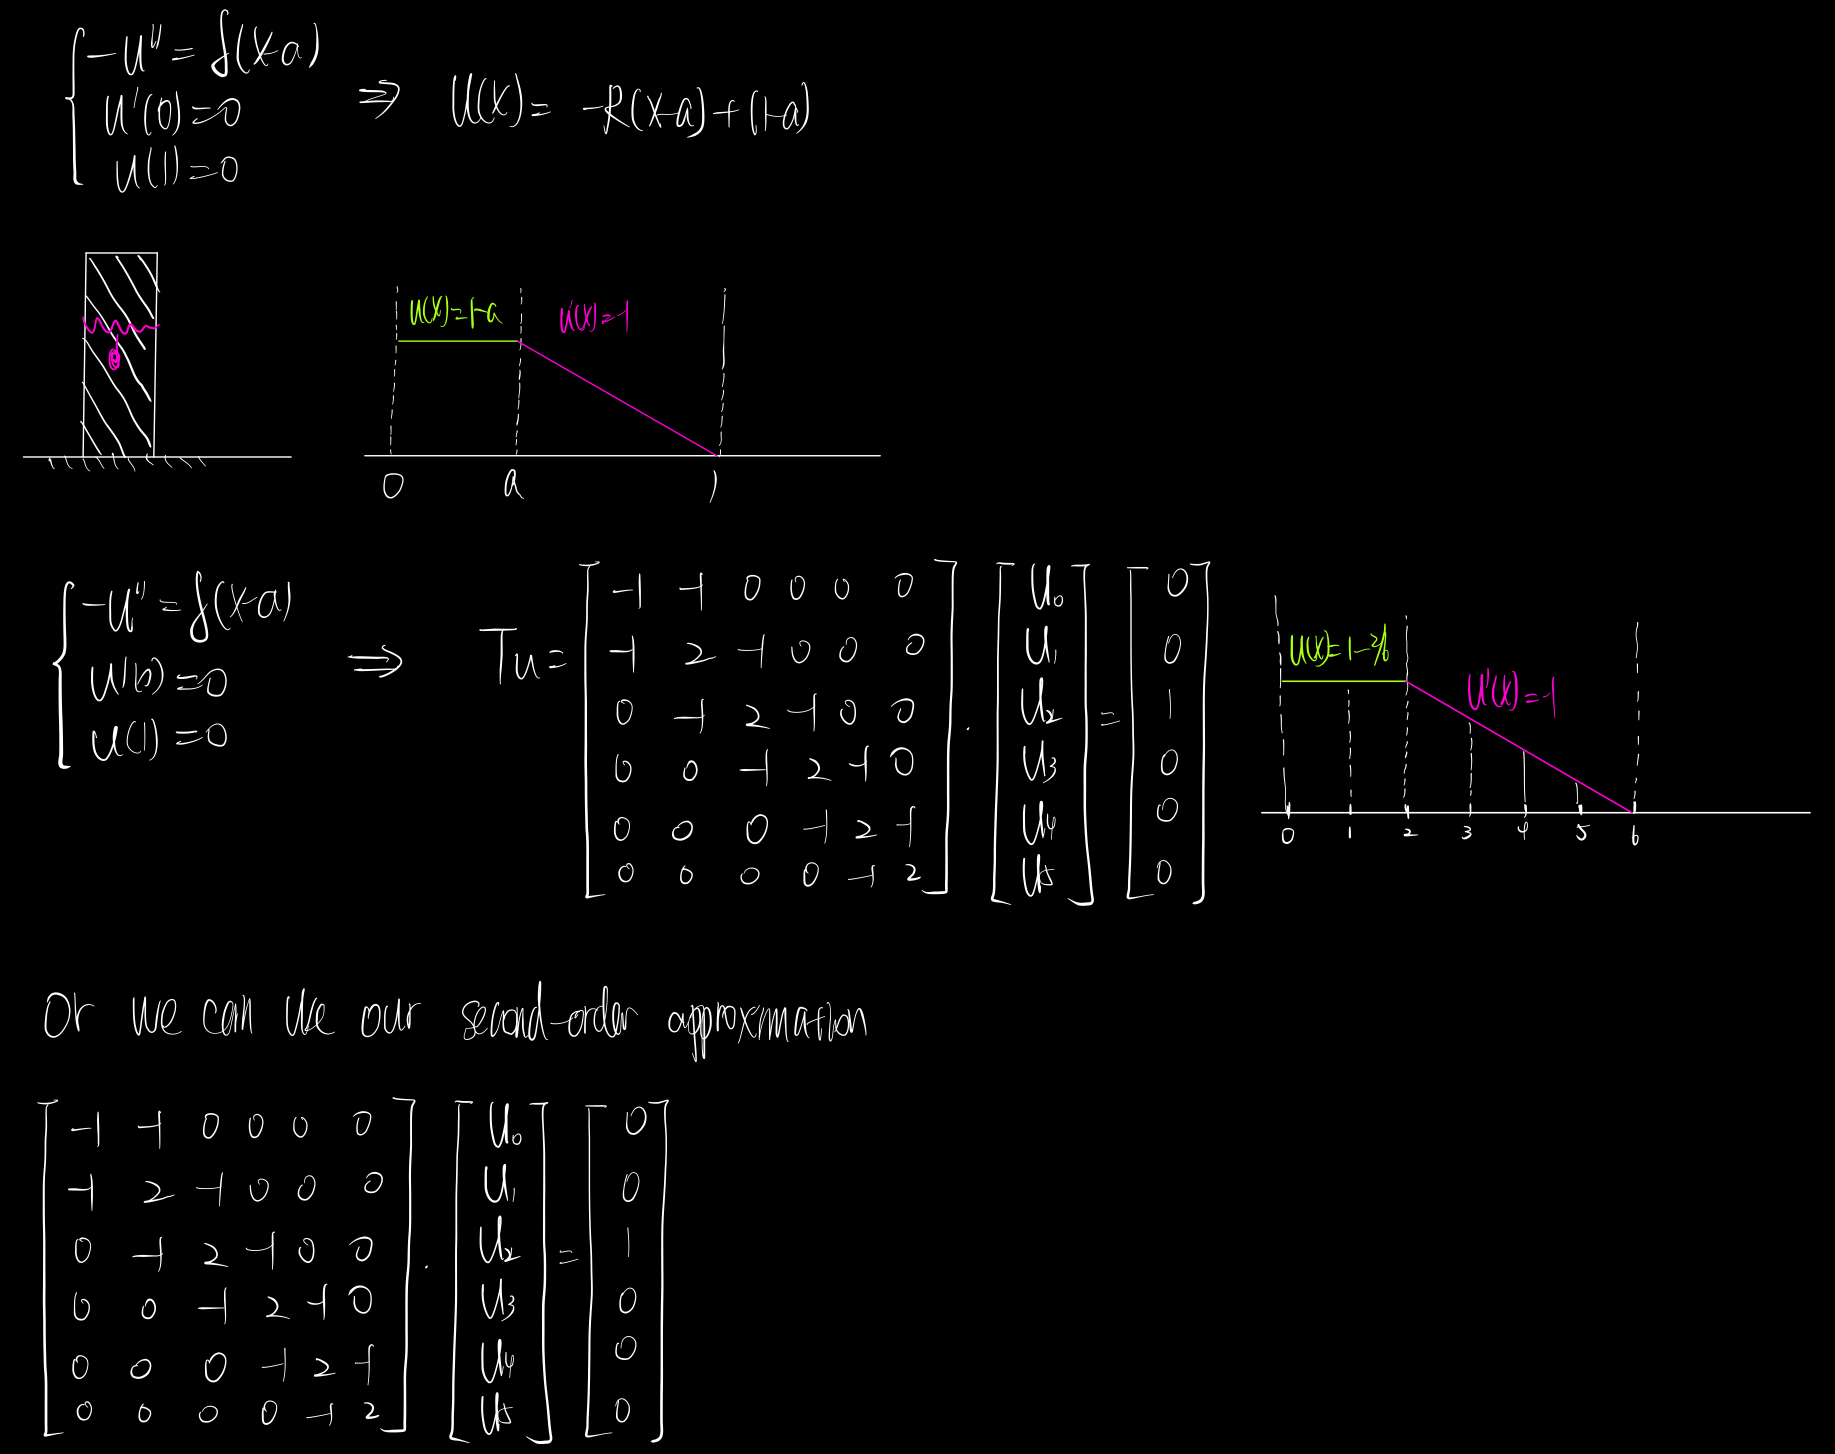 -u'' = δ(x-a)
u'(0)=0
u(1)=0
⇒ u(x) = -R(x-a)+(1-a)
u(x)=1-a
u'(x)=-1
0 a 1
-u'' = δ(x-a)
u'(0)=0
u(1)=0
⇒ Tu =
-1 -1 0 0 0 0
-1 2 -1 0 0 0
0 -1 2 -1 0 0
0 0 -1 2 -1 0
0 0 0 -1 2 -1
0 0 0 0 -1 2
·
u₀
u₁
u₂
u₃
u₄
u₅
=
0
0
1
0
0
0
u(x)=1-2/6
u'(x)=-1
0 1 2 3 4 5 6
Or we can use our second-order approximation
-1 -1 0 0 0 0
-1 2 -1 0 0 0
0 -1 2 -1 0 0
0 0 -1 2 -1 0
0 0 0 -1 2 -1
0 0 0 0 -1 2
·
u₀
u₁
u₂
u₃
u₄
u₅
=
0
0
1
0
0
0